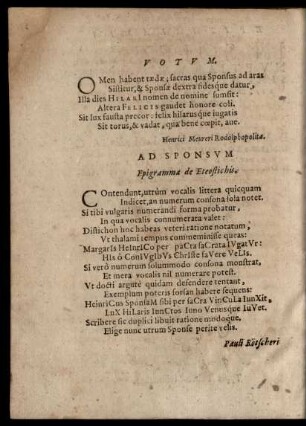 VOTVM.
OMen habent tædæ, sacras qua Sponsus ad aras
Sistitur, & Sponsæ dextra fidesque datur,
Illa dies HILARI nomen de nomine sumsit:
Altera FELICIS gaudet honore coli.
Sit lux fausta precor: felix hilarusque jugatis
Sit torus, & vadat, qua bene cœpit, ave.
Henrici Meureri Rodolphopolitæ.
AD SPONSVM
Epigramma de Eteostichis.
COntendunt, utrùm vocalis littera quicquam
Indicet, an numerum consona sola notet.
Si tibi vulgaris numerandi forma probatur,
In qua vocalis connumerata valet:
Distichon hoc habeas veteri ratione notatum,
Vt thalami tempus commeminisse queas:
MargarIs HeInrICo per paCra saCrata IVgatVr:
HIs ô ConIVgIbVs ChrIste faVere VeLIs.
Si verò numerum solummodo consona monstrat,
Et mera vocalis nil numerare potest.
Vt docti argutè quidam defendere tentant,
Exemplum poteris forsan habere sequens:
HeinriCus SponsaM sibi per saCra VinCuLa IunXit,
LuX HiLaris IunCtos Iuno Venusque IuVet.
Scribere sic duplici libuit ratione modoque.
Elige nunc utrum Sponse perite velis.
Pauli Rötscheri